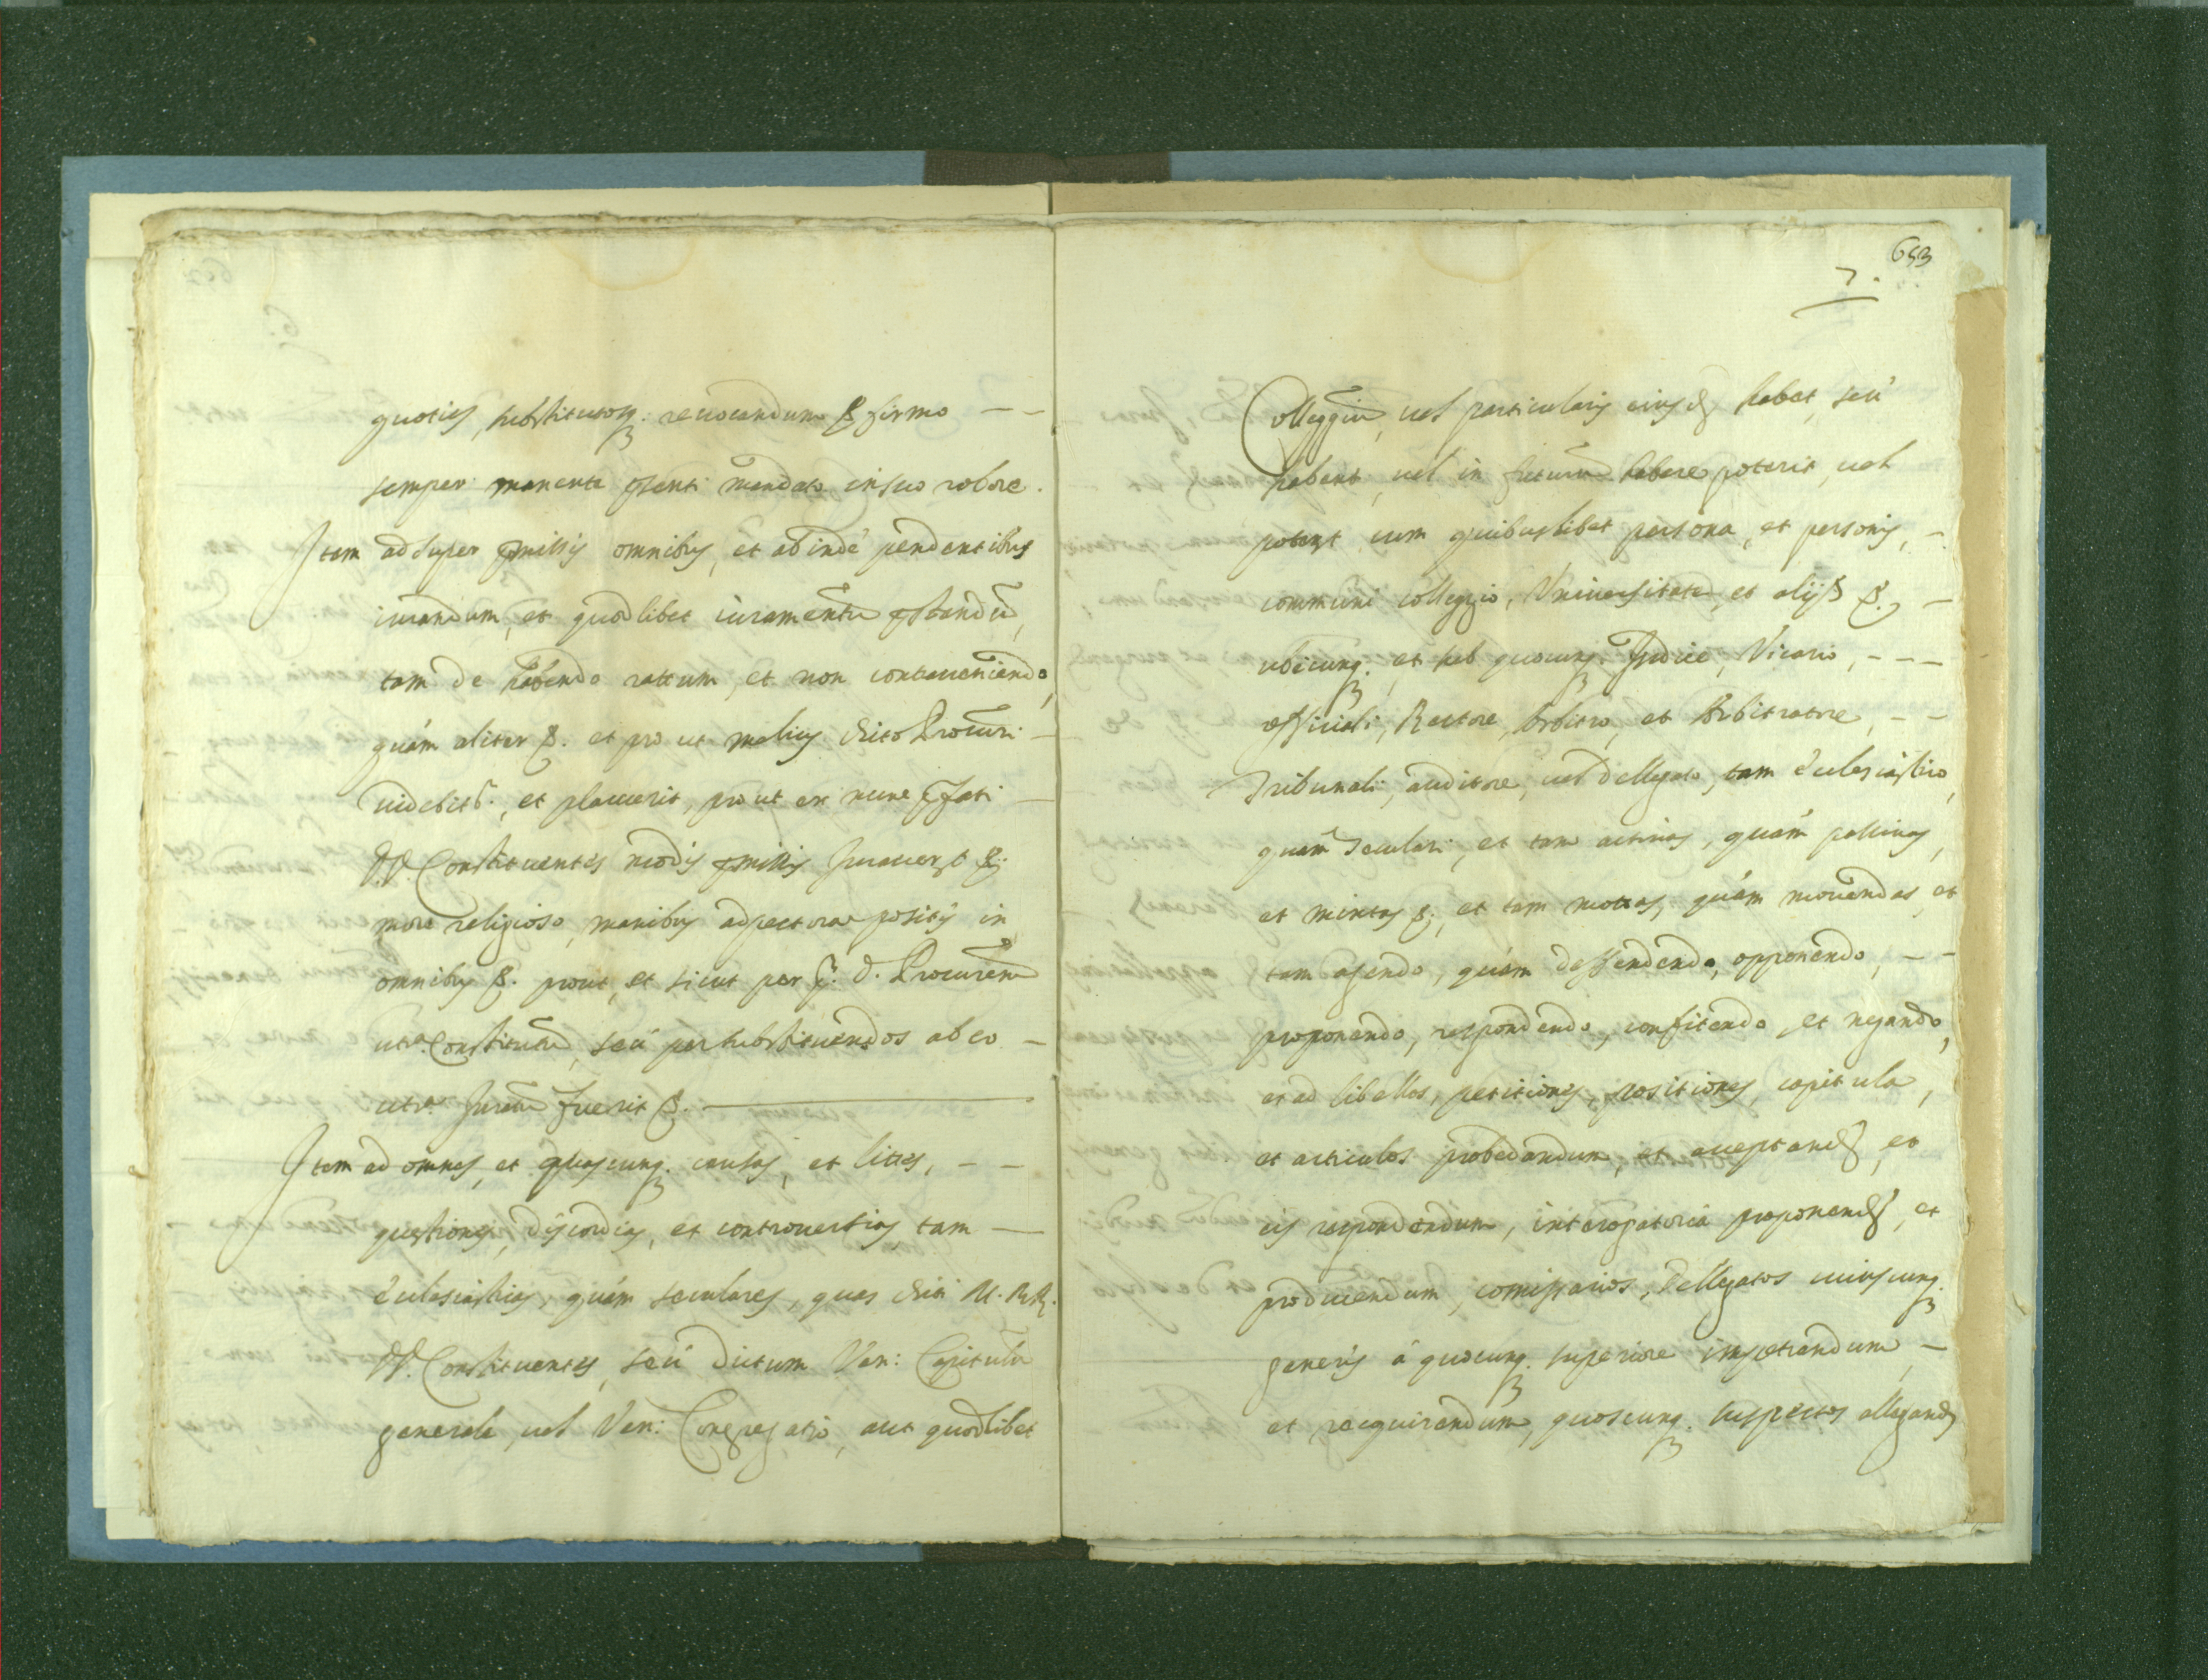 quoties, substitutosq. revocandum &c. firmo - -
semper manente pñti mandato in suo robore.
Item ad super pmissis omnibus, et ab indè pendentibus
iurandum, et quodlibet iuramentũ pstandũ,
tam de habendo rattum, et non contraveniendo,
quàm aliter &c. et pro ut melius dicto Procuri -
videbitr., et placuerit, prout ex nunc pfati -
PP. Constituentes modis pmissis Iuraverũt &c.
more religioso, manibus ad pectora positis in
omnibus &c. prout, et sicut per p. d. Procurem̃
utsa. Constitutũ, seù per substituendos ab eo -
utsa. Iuratũ fuerit &c.
Item ad omnes, et quascunq. causas, et lites, - -
questiones, discordias, et controversias, tam -
ecclesiasticas, quàm seculares, quas dicti M. RR.
PP. Constituentes, seù dictum Ven: Capitulũ
generale, vel Ven: Congregatio, aut quodlibet
653
7.
Colleggiũ, vel particularis eiusd. habet, seù
habent, vel in futurũ habere poterit, vel
poterũt cum quibuslibet persona, et personis, -
communi collegio, Universitate, et alijs &c., -
ubicunq. et sub quocunq. Iudice, Vicario, - - -
officiali, Rectore, Arbitro, et Arbitratore, - -
Tribunali, auditore, vel dellegato, tam ecclesiastico,
quam seculari, et tam activas, quàm passivas,
et mixtas &c., et tam mottas, quàm movendas, et
tam agendo, quàm deffendendo, opponendo, - -
proponendo, respondendo, confitendo, et negando,
et ad libellos, petitiones, positiones, capitula,
et articulos et acceptand., et
eis respondendum, interogatoria proponend., et
producendum, comissarios, dellegatos cuiuscunq.
generis à quocunq. superiore impetrandum, -
et requirendum, quoscunq. suspectos allegand.